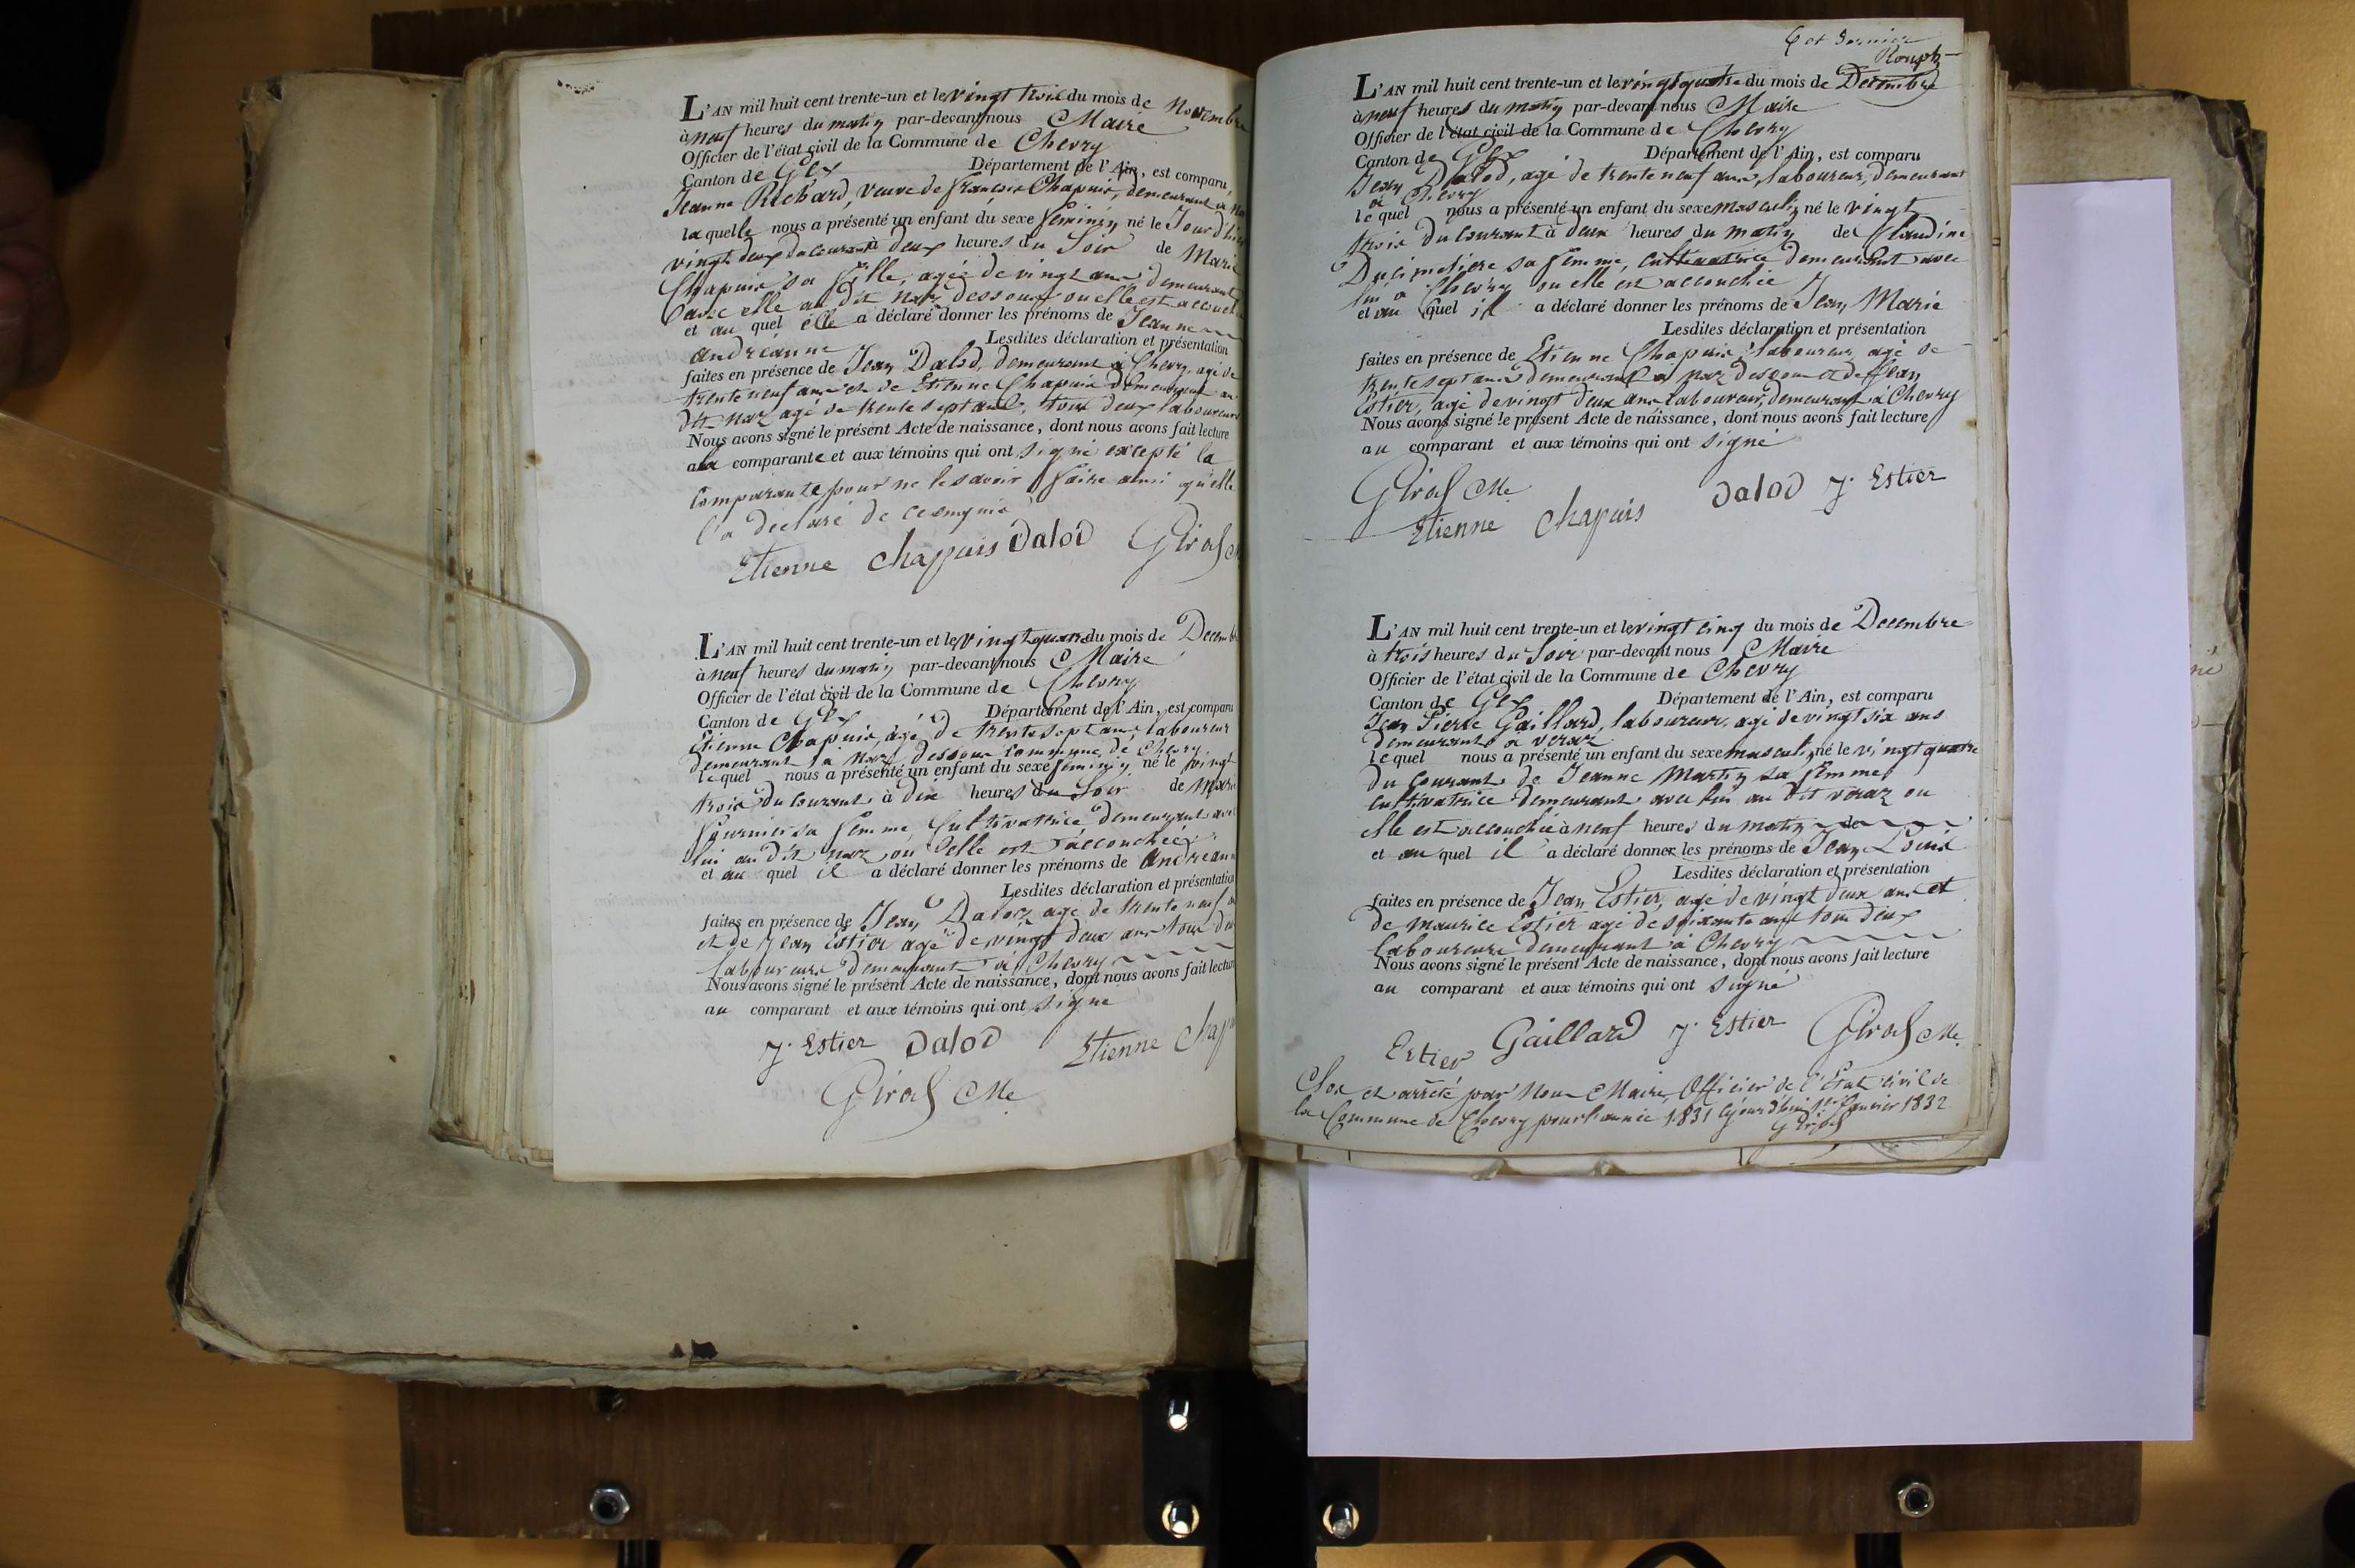 L'AN mil huit cent trente-un et le vingt trois du mois de Novembre
à neuf heures du matin par-devant nous Maire
Officier de l'état civil de la Commune de Chevry
Canton de Gex Département de l'Ain, est comparu,
Jeanne Richard, veuve de françois Chapuis, demeurant à
laquelle nous a présenté un enfant du sexe feminin né le Jour d'hier
vingt deux du courant à deux heures du Soir de Marie
Chapuis sa fille, agée de vingt ans demeurant
avec elle au dit Naz dessous ou elle est accouchée
et au quel elle a déclaré donner les prénoms de Jeanne
andréanne Lesdites déclaration et présentation
faites en présence de Jean Dalod, demeurant à Chevry, agé de
trente neuf ans et de Etienne Chapuis demeurant au
dit naz agé de trente sept ans, tous deux laboureurs
Nous avons signé le présent Acte de naissance, dont nous avons fait lecture
a la comparante et aux témoins qui ont signé excepté la
comparante pour ne le savoir faire ainsi qu'elle
l'a declaré de ce enquise
Etienne Chapuis Dalod Girod
L'AN mil huit cent trente-un et le vingt quatre du mois de Decembre
à neuf heures du matin par-devant nous Maire
Officier de l'état civil de la Commune de Chevry
Canton de Gex Département de l'Ain, est comparu
Etienne Chapuis, agé de trente sept ans, laboureur
demeurant à Naz dessous commune de Chevry
lequel nous a présenté un enfant du sexe feminin né le vingt
trois du courant à dix heures du Soir de Marie
Fournier sa femme, Cultivatrice demeurant avec
lui au dit naz ou elle est accouchée
et au quel il a déclaré donner les prénoms de andreanne
Lesdites déclaration et présentation
faites en présence de Jean Daloz agé de trente neuf ans
et de Jean Estier agé de vingt deux ans tous deux
laboureurs demeurant à Chevry
Nous avons signé le présent Acte de naissance, dont nous avons fait lecture
au comparant et aux témoins qui ont signé
J. Estier Dalod Etienne Chap
Girod Me
6 et dernier
L'AN mil huit cent trente-un et le vingt quatre du mois de Decembre
à neuf heures du matin par-devant nous Maire
Officier de l'état civil de la Commune de Chevry
Canton de Gex Département de l'Ain, est comparu
Jean Dalod, agé de trente neuf ans, laboureur, demeurant
à Chevry
lequel nous a présenté un enfant du sexe masculin né le vingt
trois du courant à deux heures du matin de Claudine
Ducimetiere sa femme, cultivatrice demeurant avec
lui à Chevry ou elle est accouchée
et au quel il a déclaré donner les prénoms de Jean Marie
Lesdites déclaration et présentation
faites en présence de Etienne Chapuis, laboureur, agé de
trente sept ans demeurant à naz dessous et de Jean
Estier, agé de vingt deux ans laboureur, demeurant à Chevry
Nous avons signé le présent Acte de naissance, dont nous avons fait lecture
au comparant et aux témoins qui ont signé
Girod Me Dalod J. Estier
Etienne Chapuis
L'AN mil huit cent trente-un et le vingt cinq du mois de Decembre
à trois heures du Soir par-devant nous Maire
Officier de l'état civil de la Commune de Chevry
Canton de Gex Département de l'Ain, est comparu
Jean Pierre Gaillard, laboureur, agé de vingt six ans
demeurant à veraz
lequel nous a présenté un enfant du sexe masculin né le vingt quatre
du courant de Jeanne Martin sa femme
cultivatrice demeurant avec lui au dit veraz ou
elle est accouchée à neuf heures du matin de
et au quel il a déclaré donner les prénoms de Jean Louis
Lesdites déclaration et présentation
faites en présence de Jean Estier, agé de vingt deux ans et
de maurice Estier agé de soixante ans tous deux
laboureurs demeurant à Chevry
Nous avons signé le présent Acte de naissance, dont nous avons fait lecture
au comparant et aux témoins qui ont signé
Estier Gaillard J. Estier Girod Me
Clos et arrêté par Nous Maire Officier de l'Etat civil de
la Commune de Chevry pour l'année 1831 cejourd'hui 1er Janvier 1832
Girod